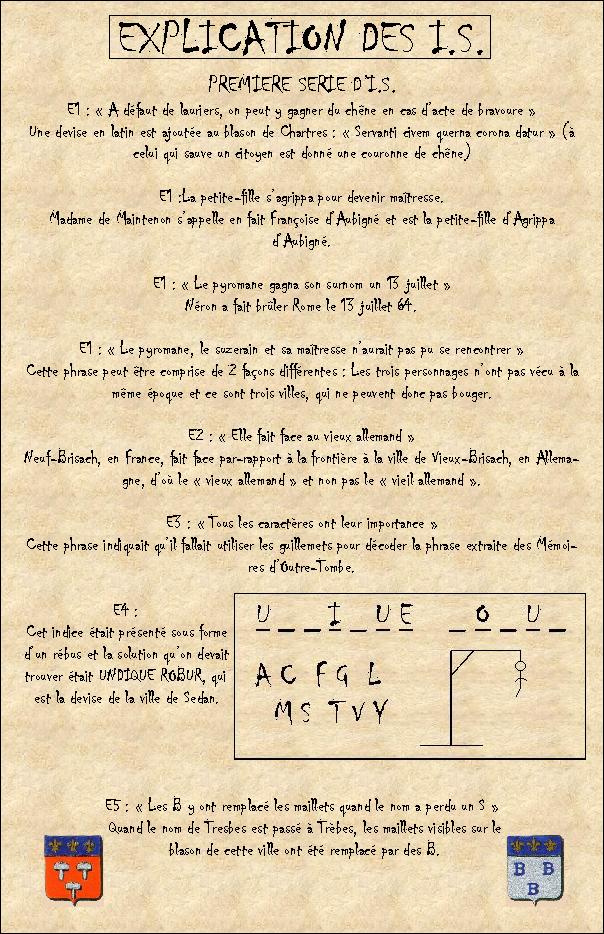 EXPLICATION DES I.S.
PREMIERE SERIE D'I.S.
E1 : « A défaut de lauriers, on peut y gagner du chêne en cas d'acte de bravoure »
Une devise en latin est ajoutée au blason de Chartres : « Servanti civem querna corona datur » (à
celui qui sauve un citoyen est donné une couronne de chêne)
E1 :La petite-fille s'agrippa pour devenir maîtresse.
Madame de Maintenon s'appelle en fait Françoise d'Aubigné et est la petite-fille d'Agrippa
d'Aubigné.
E1 : « Le pyromane gagna son surnom un 13 juillet »
Néron a fait brûler Rome le 13 juillet 64.
E1 : « Le pyromane, le suzerain et sa maîtresse n'aurait pas pu se rencontrer »
Cette phrase peut être comprise de 2 façons différentes : Les trois personnages n'ont pas vécu à la
même époque et ce sont trois villes, qui ne peuvent donc pas bouger.
E2 : « Elle fait face au vieux allemand »
Neuf-Brisach, en France, fait face par-rapport à la frontière à la ville de Vieux-Brisach, en Allema-
gne, d'où le « vieux allemand » et non pas le « vieil allemand ».
E3 : « Tous les caractères ont leur importance »
Cette phrase indiquait qu'il fallait utiliser les guillemets pour décoder la phrase extraite des Mémoi-
res d'Outre-Tombe.
E4 :
Cet indice était présenté sous forme
d'un rébus et la solution qu'on devait
trouver était UNDIQUE ROBUR, qui
est la devise de la ville de Sedan.
U _ _ I _ U E _ O _ U _
A C F G L
M S T V Y
E5 : « Les B y ont remplacé les maillets quand le nom a perdu un S »
Quand le nom de Tresbes est passé à Trèbes, les maillets visibles sur le
blason de cette ville ont été remplacé par des B.
B B
B